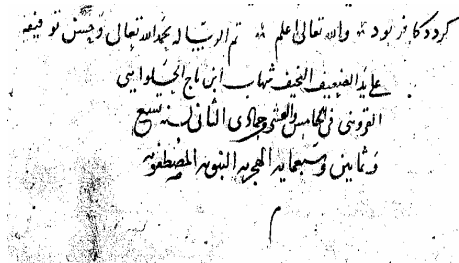 گردد كافر بود والله تعالی اعلم تم الرسالة بحمد الله تعالی وحسن توفيقه
علی يد الضعيف النحيف شهاب ابن تاج الحلوايی
القزوينی فی الخامس والعشر جمادی الثانی سنه سبع
وثمانين وسبعمايه الهجريه النبويه المصطفويه
م